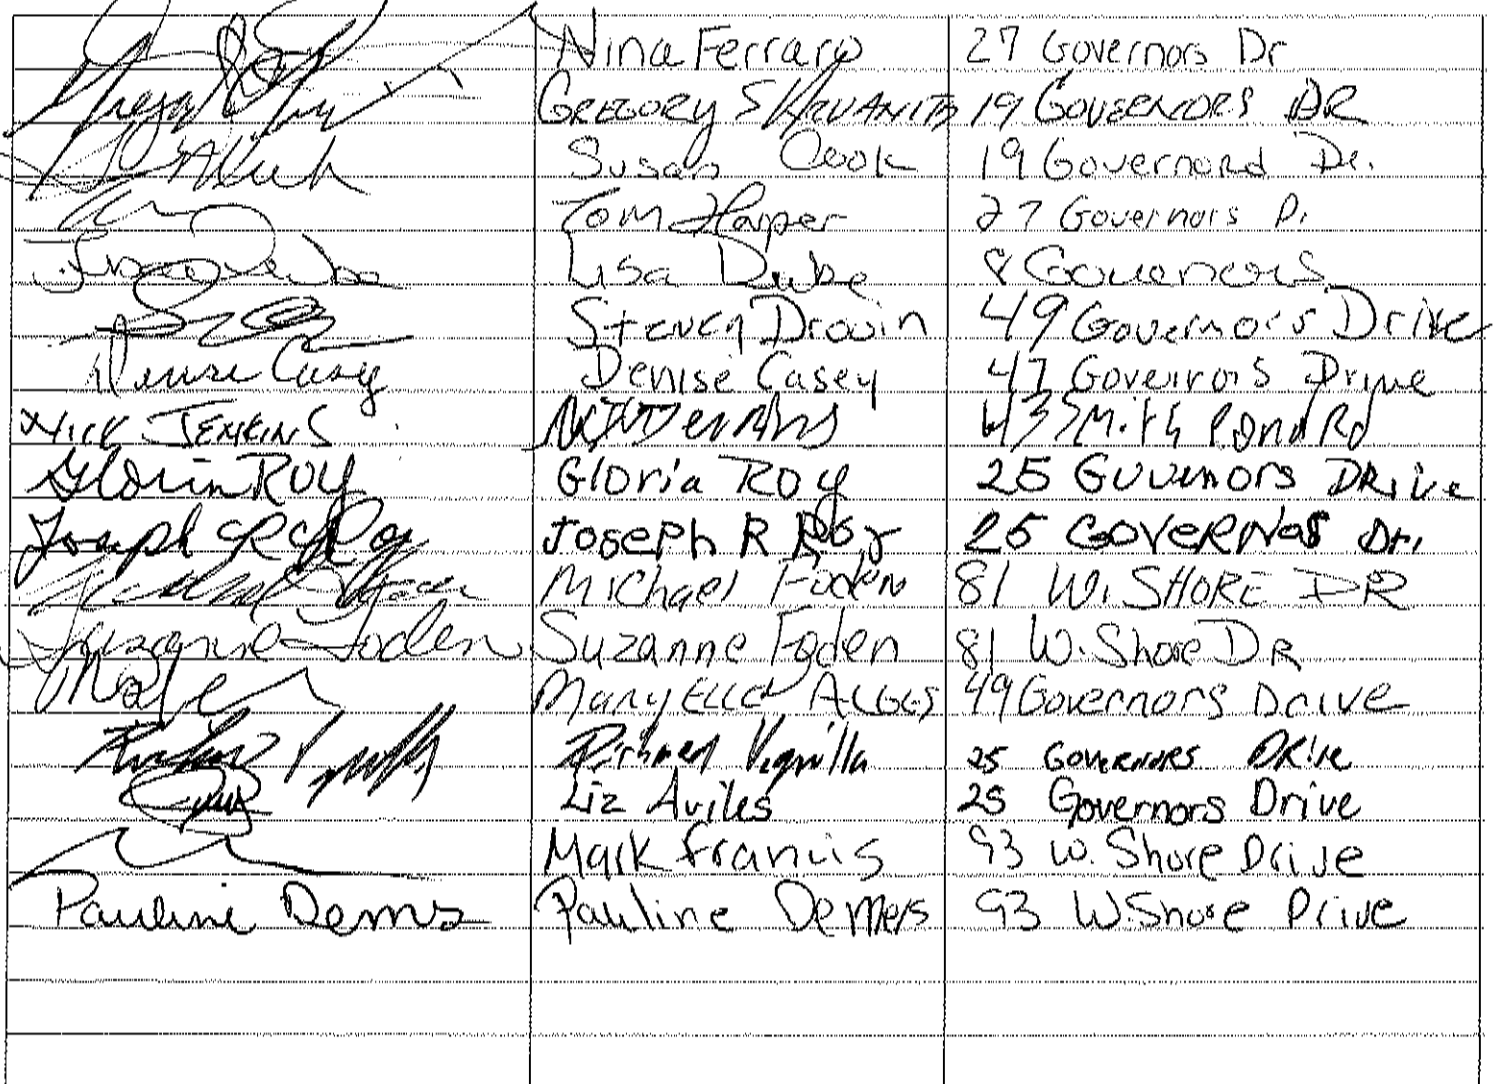 Nina Ferraro 27 Governors Dr
GREGORY S 19 GOVERNORS DR
Susan Cook 19 Governord Dr.
Tom Harper 27 Governors Dr
Lisa Dube 8 Governors
Steven Drouin 49 Governors Drive
Denise Casey Denise Casey 47 Governors Drive
Nick JENKINS 43 Smith Pond Rd
Gloria ROY Gloria ROY 25 Guvenors DRive
Joseph R Roy Joseph R Roy 25 GOVERNOS Dr.
Michael Foden Michael Foden 81 W. SHORE DR
Suzanne Foden Suzanne Foden 81 W. Shore DR
Mary Ellen 49 Governors Drive
Richard 25 GOVERNORS DRive
Liz Aviles 25 Governors Drive
Mark Francis 93 W. Shore Drive
Pauline Demers Pauline Demers 93 W. Shore Drive